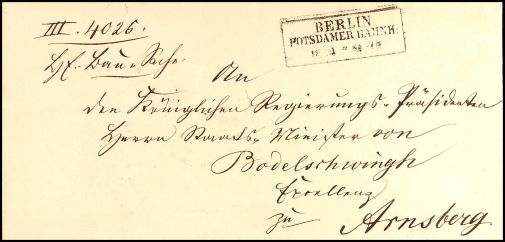 III. 4026.
BERLIN
POTSDAMER BAHNH.
Bau-Sache.
An
den Königlichen Regierungs-Präsidenten
Herrn Staats-Minister von
Bodelschwingh
Excellenz
zu Arnsberg